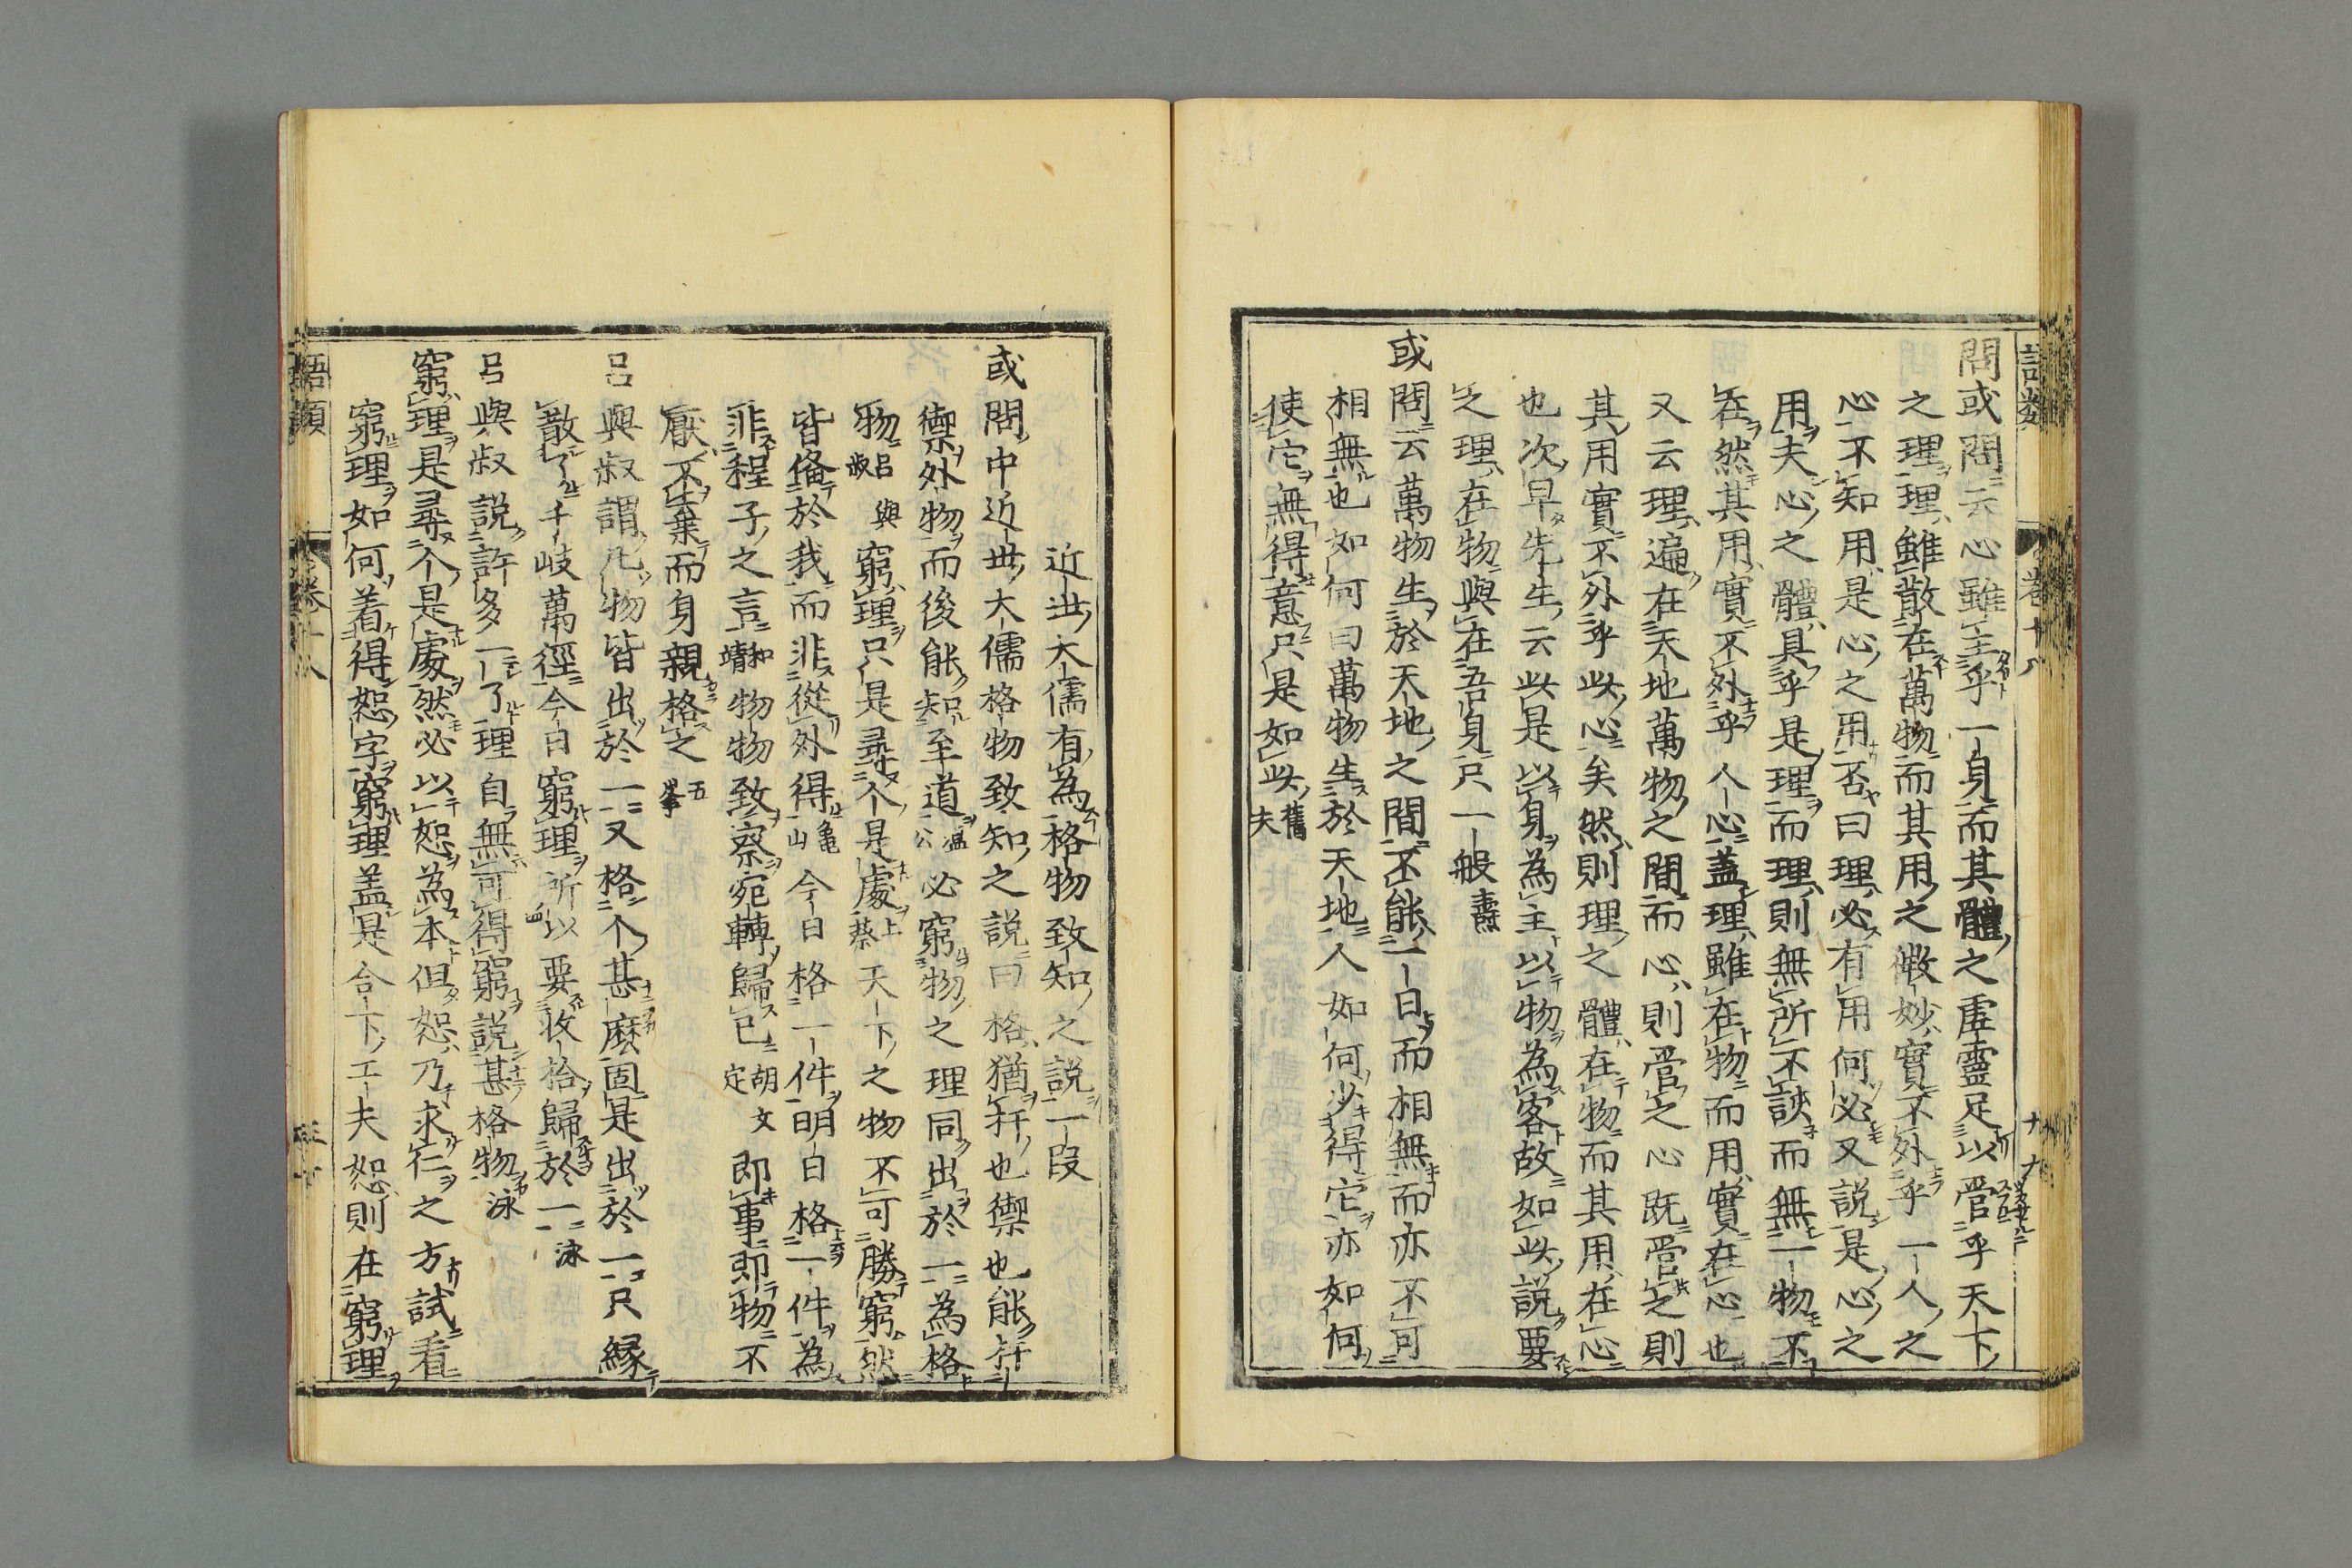 語類 卷十八 十九
問或問云心雖主乎一身而其體之虛靈足以管乎天下
之理理雖散在萬物而其用之微妙實不外乎一人之
心不知用是心之用否曰理必有用何必又說是心之
用夫心之體具乎是理而理則無所不該而無一物不
在然其用實不外乎人心蓋理雖在物而用實在心也
又云理遍在天地萬物之間而心則管之心既管之則
其用實不外乎此心矣然則理之體在物而其用在心
也次早先生云此是以身為主以物為客故如此說要
之理在物與在吾身只一般 燾
或問云萬物生於天地之間不能一日而相無而亦不可
相無也如何曰萬物生於天地人如何少得它亦如何
使它無得意只是如此 舊夫
近世大儒有為格物致知之說一段
或問中近世大儒格物致知之說曰格猶扞也禦也能扞
禦外物而後能知至道 溫公 必窮物之理同出於一為格
物 呂與叔 窮理只是尋个是處 上蔡 天下之物不可勝窮然
皆俻於我而非從外得 龜山 今日格一件明日格一件為
非程子之言 和靖 物物致察宛轉歸已 胡文定 即事即物不
厭不棄而身親格之 五峯
呂與叔謂凡物皆出於一又格个甚麼固是出於一只緣
散了千岐萬徑今日窮理所以要收拾歸於一 泳
呂與叔說許多一了理自無可得窮說甚格物 泳
窮理是尋个是處然必以恕為本但恕乃求仁之方試看
窮理如何着得恕字窮理蓋是合下工夫恕則在窮理
語類 卷十八